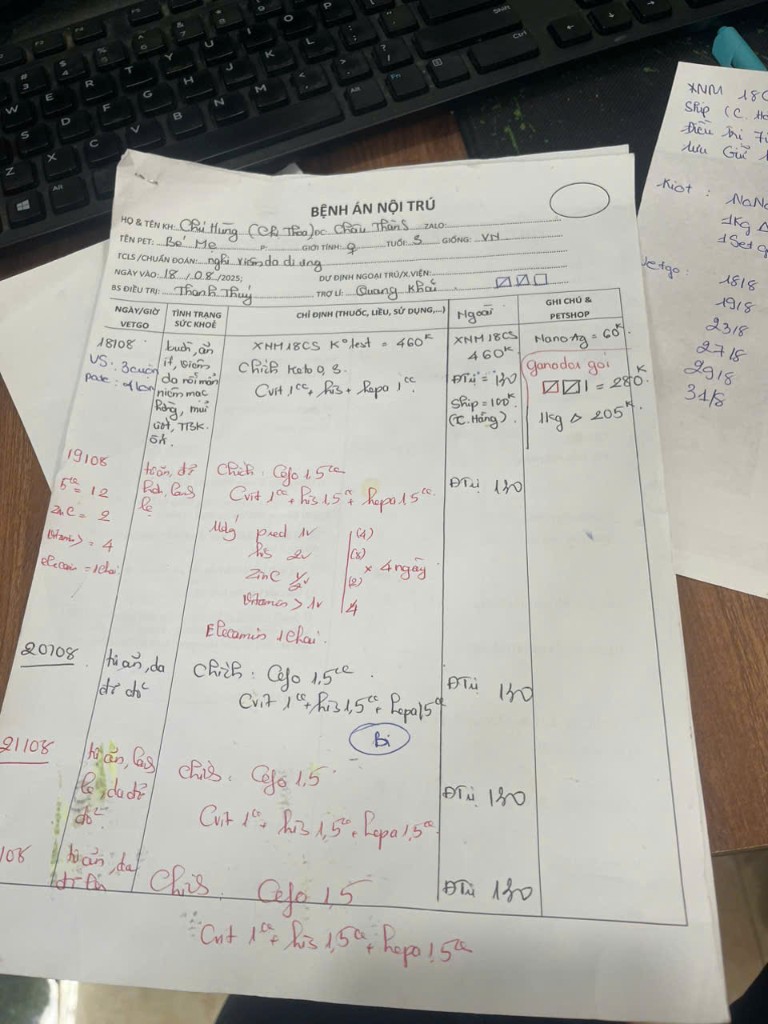 BỆNH ÁN NỘI TRÚ
HỌ & TÊN KH: Chú Hùng (Ch Thoa) oc Châu Thành ZALO:
TÊN PET: Bé Mẹ GIỚI TÍNH: ♀ TUỔI: 5 GIỐNG: VN
TCLS/CHUẨN ĐOÁN: nghi viêm da dị ứng
NGÀY VÀO: 18/08/2025; DỰ ĐỊNH NGOẠI TRÚ/X.VIỆN:
BS ĐIỀU TRỊ: Thanh Thuý TRỢ LÍ: Quang Khải
NGÀY/GIỜ VETGO
TÌNH TRẠNG SỨC KHOẺ
CHỈ ĐỊNH (THUỐC, LIỀU, SỬ DỤNG,...)
Ngoài
GHI CHÚ & PETSHOP
18/08
VS: 3 cuộn
pate:
buồn, ăn
ít, viêm
da nổi mẩn
niêm mạc
hồng, mũi
ướt, TBK.
XNM 18CS Ko test = 460K
Chích Keto 0,8.
Cvit 1cc + his + hepa 1cc
XNM 18CS
460K
ĐTrị = 130
Ship = 100K
(C. Hằng).
Nano Ag = 60K
ganador gói
1 = 280K
1kg 205K
19/08
= 12
zinC = 2
= 4
Elecamin = 1 chai
từ ăn, đỡ
hơn, lanh
lẹ
Chích: Cefo 1,5cc
Cvit 1cc + his 1,5 + hepa 1,5cc
ĐTrị 130
pred 1v
his 2v
zinC ½v
Vitamin > 1v
x 4 ngày
Elecamin 1 chai.
20/08
từ ăn, da
đỡ đỏ
Chích: Cefo 1,5cc
Cvit 1cc + his 1,5cc + hepa 1,5cc
ĐTrị 130
Bi
21/08
từ ăn, lanh
lẹ, da đỡ
đỏ
Chích: Cefo 1,5
Cvit 1cc + his 1,5cc + hepa 1,5cc
ĐTrị 130
/08
từ ăn, da
Chích Cefo 1,5
ĐTrị 130
Cvit 1cc + his 1,5cc + hepa 1,5cc
XNM 18C
Ship (C. Hằ
Điều trị
lưu Giữ
Kiot: NaNo
1Kg
1Set
Vetgo: 18/8
19/8
23/8
27/8
29/8
31/8